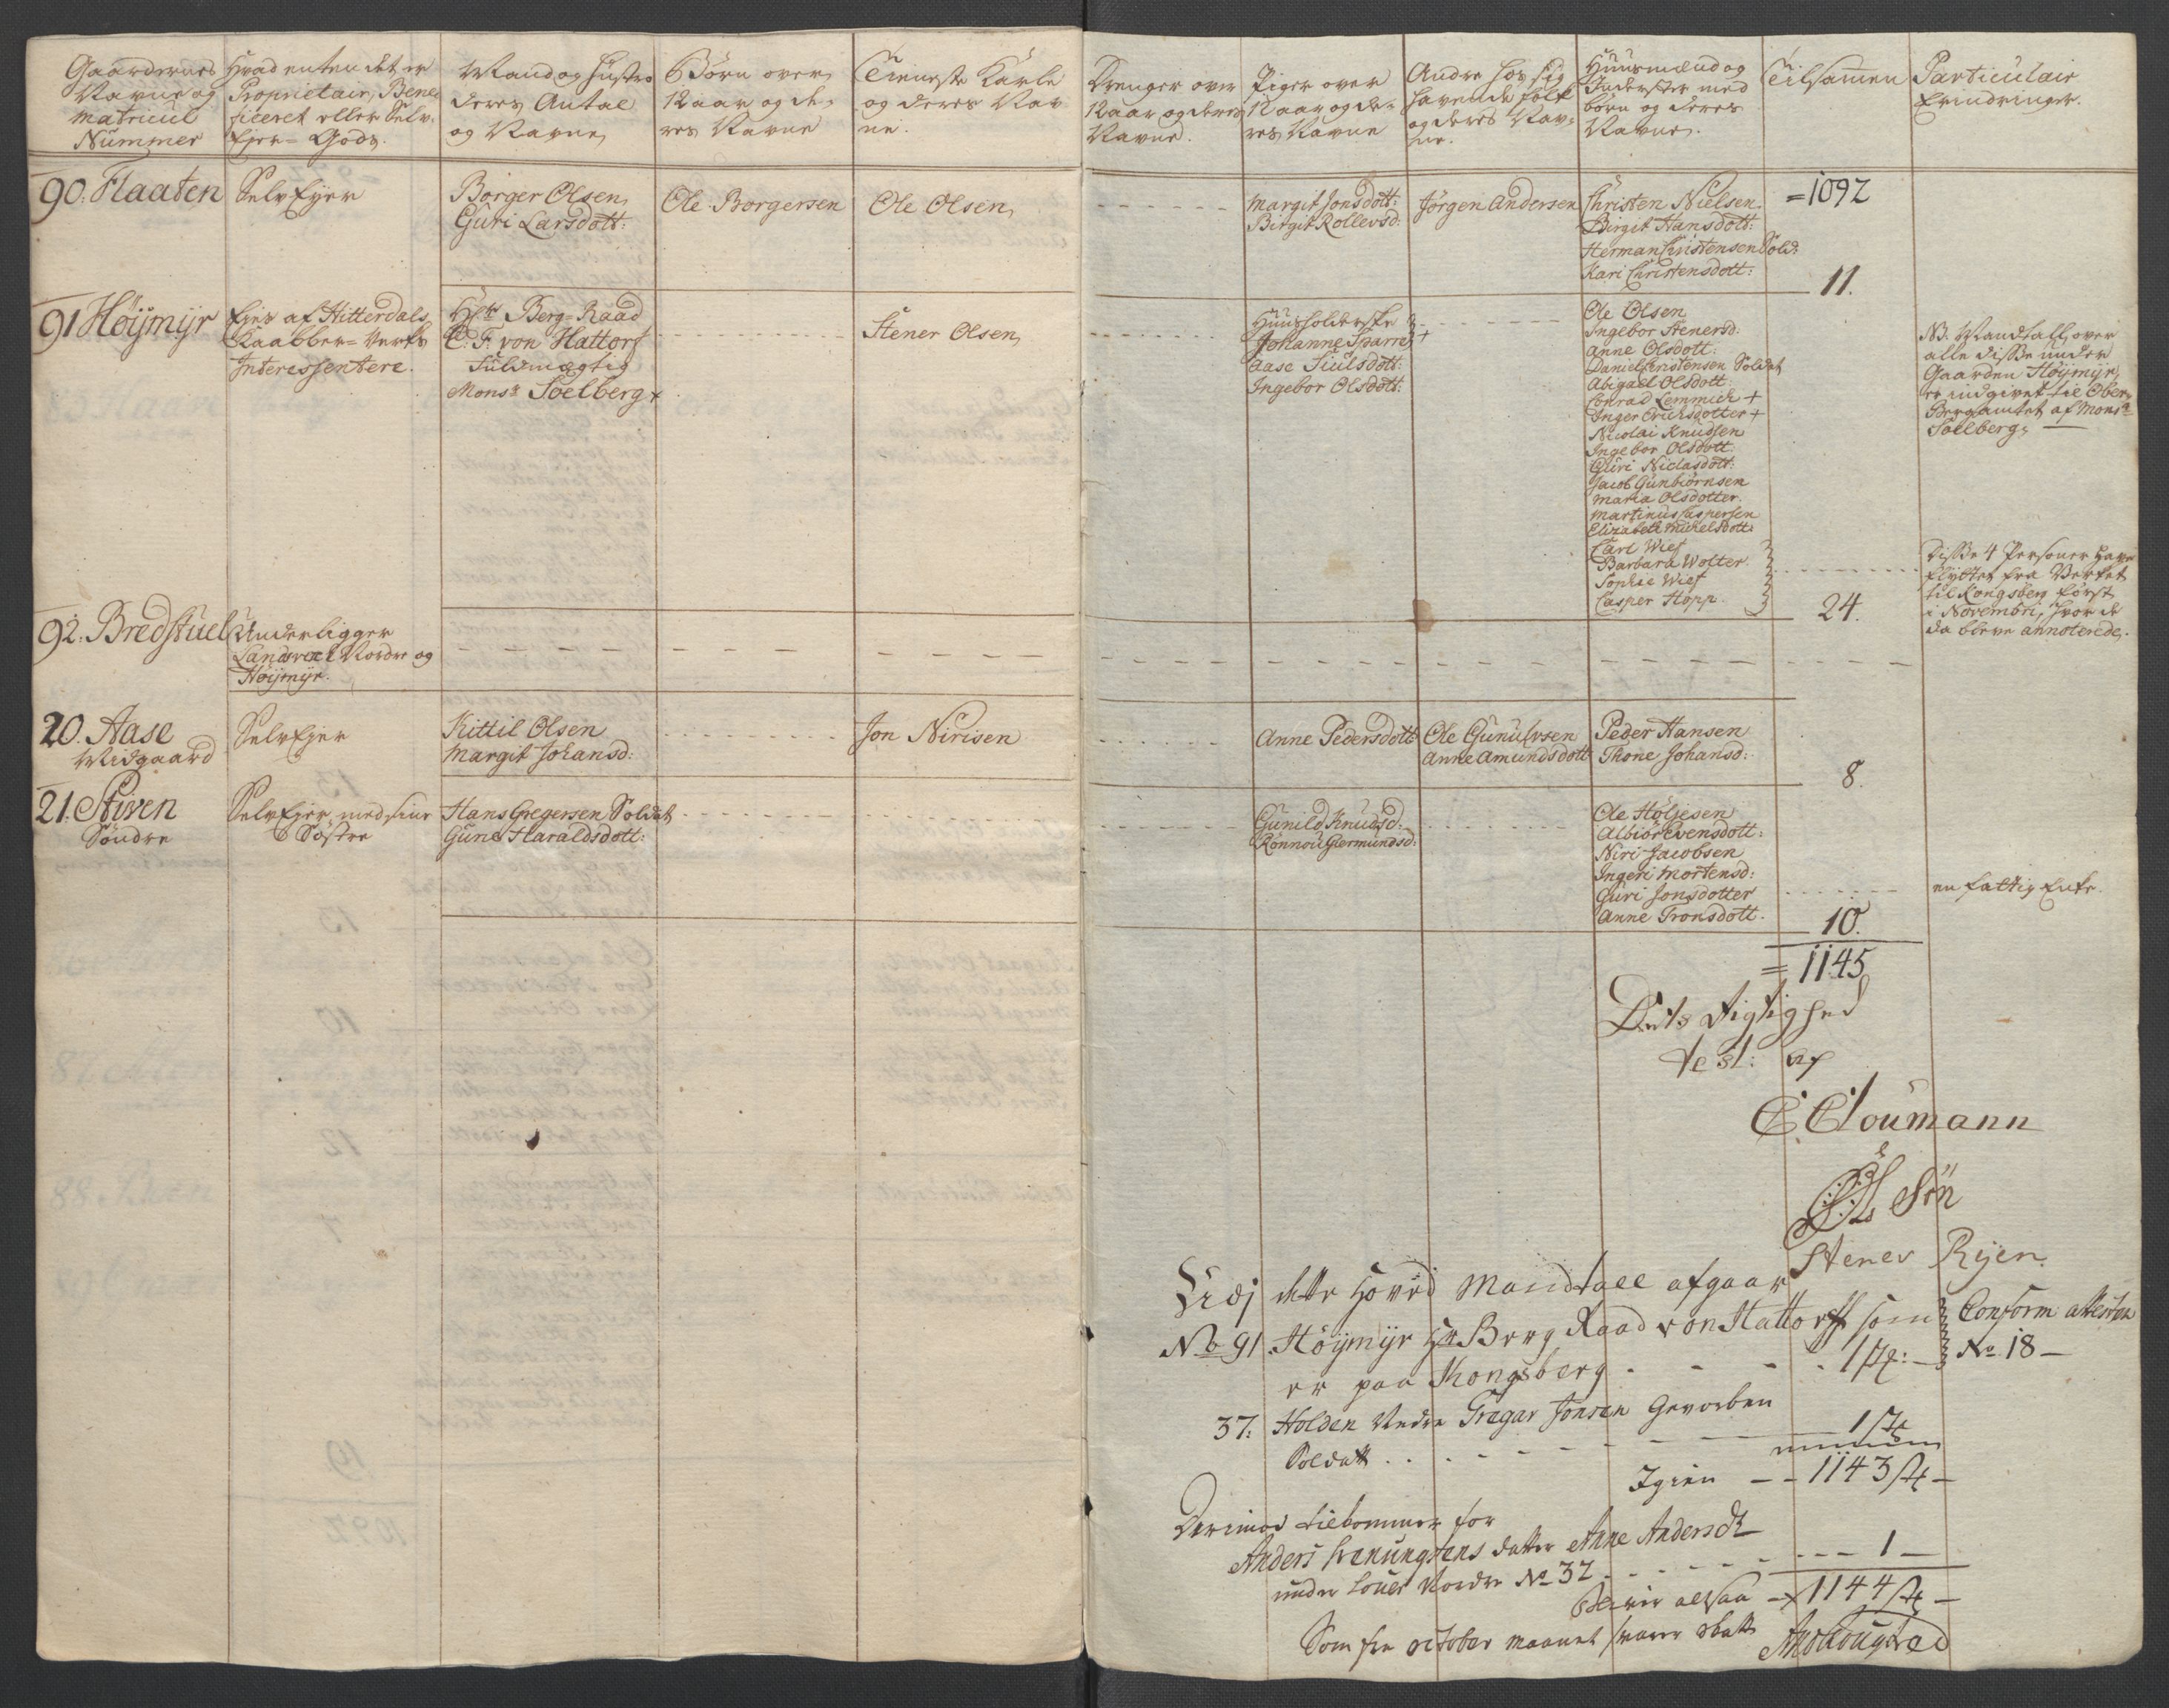 Gaardernes
Navne og
Matricul
Nummer
Hvad enten det er
Proprietair, Bene-
ficeret eller Selv-
Ejer= Gods.
Mand og Hustro
deres Antal
og Navne
Børn over
12 aar og de-
res Navne
Tieneste Karle
og deres Nav
ne.
Drenger over
12 aar og deres
Navne.
Piger over
12 aar og de-
res Navne
Andre hos sig
havende folk
og deres Nav-
ne.
Huusmænd og
Inderster med
børn og deres
Navne.
Tilsammen
Particulair
Erindringer.
90. Flaaten
SelvEjer
Borger Olsen
Guri Larsdott:
Ole Borgersen
Ole Olsen
Margit Jonsdott:
Birgit Rollevsd:
Jörgen Andersen
Christen Nielsen
Birgit Hansdott:
Herman Christensen Sold:
Kari Christensdott:
=1092
11.
91 Höijmijr
Ejes af Hitterdals
Kaabber= Verks
Interessentere.
Hr Berg=Raad
C. F. von Hattorf
Fuldmægtig
Monsr Soelberg +
Stener Olsen
Huusholderske
Johanne Sparre +
Aase Siulsdott:
Ingebor Olsdott:
Ole Olsen
Ingebor Stenersd:
Anne Olsdott:
Daniel Christensen Soldat
Abigael Olsdott
Conrad Lemmich +
Inger Erichsdotter +
Nicolai Knudsen
Ingebor Olsdott
Guri Niclasdott:
Jacob Gunbiörnsen
Maria Olsdotter.
Martinus Caspersen
Elizabeth Michelsdott:
Carl Wief
Barbara Wolter
Sophie Wief
Casper Hopp
24.
NB. Mandtall over
alle disse under
Gaarden Höijmijr,
er indgivet til Ober-
Bergamtet af Monsr
Soelberg,
Disse 4 Personer have
flyttet fra Verket
til Kongsberg först
i Novembri, hvor de
da bleve annoterede.
92. Bredstuel
Underligger
Landsverk Nordre og
Höijmijr.
20. Aase
Midgaard
SelvEjer
Kittil Olsen
Margit Johansd:
Jon Nirisen
Anne Pedersdott
Ole Gunulvsen
Anne Amundsdott
Peder Hansen
Thone Johansd:
8.
21. Stiven
Söndre
SelvEjer med sine
6 Söstre
Hans Gregersen Soldat
Gune Haraldsdott:
Gunild Knudsd:
Rönnou Giermundsd:
Ole Höljesen
Albiör Evensdott:
Niri Jacobsen
Ingeri Mortensd:
Guri Jonsdotter
Anne Tronsdott.
en fattig Enke.
10.
= 1145
Dets Rigtighed
test: af
C. Cloumann
Stener Rijen.
Udj dette Hoved Mandtall afgaar
No 91. Höijmijr Hr Berg Raad von Hattorff som
er paa Kongsberg - - - 1 st: -
Conform attesten
No 18 -
37: Holden Nedre Tregar Jonsen Gevorben
Soldatt . . - - - 1 st
Igien - - 1143 st -
Derimod tilkommer for
Anders datter Anne Andersdt
under Nordre No 32 - - - 1 -
Bliver altsaa - 1144 st -
Som fra october maanet svarer skatt